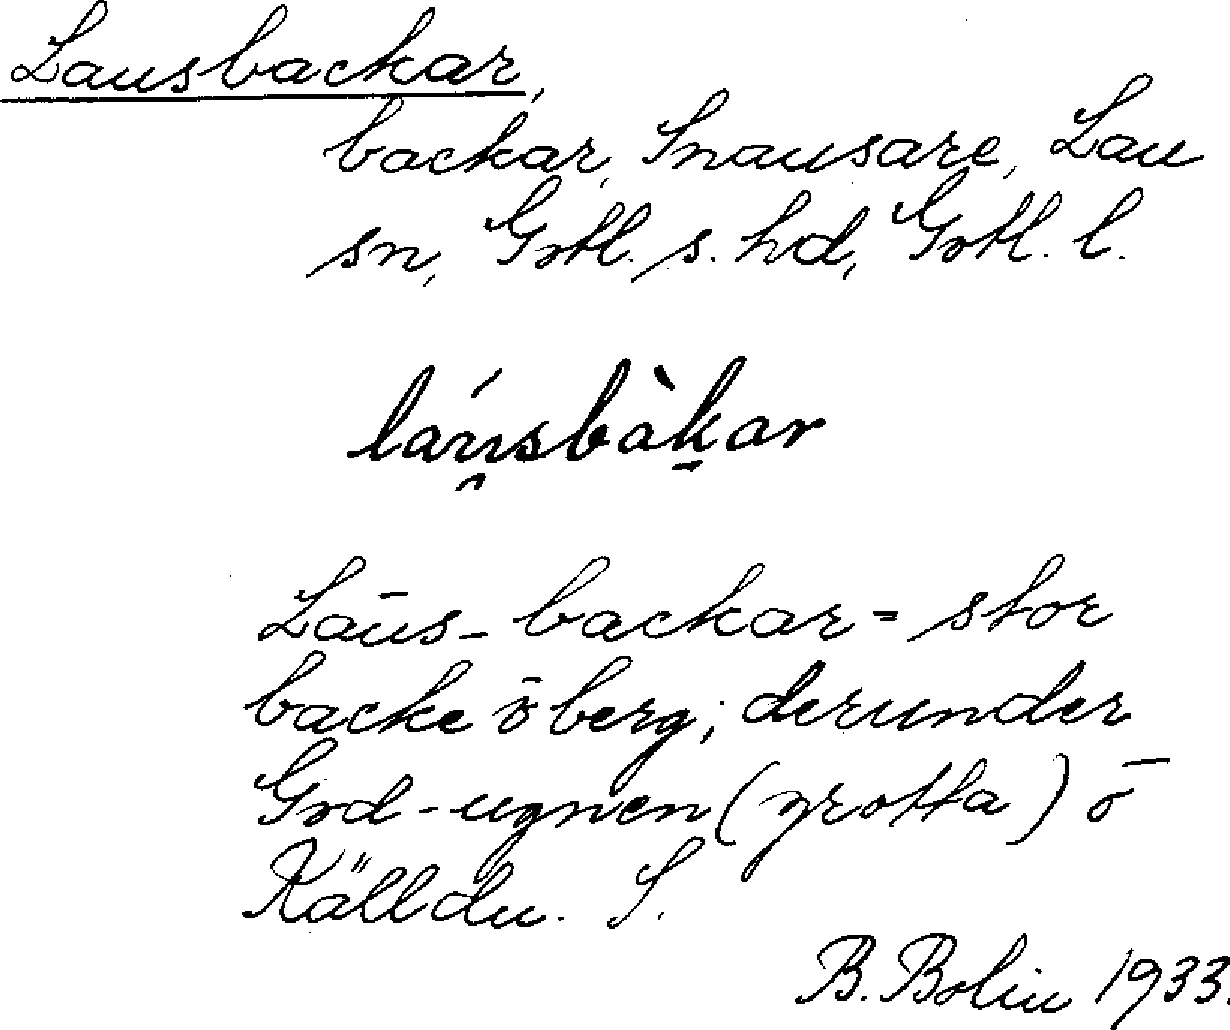 Lausbackar,
backar, Snausare, Lau
sn, Gotl. s. hd, Gotl. l.
láu̯sbàk̠ar
Lāus-backar = stor
backe ō berg; derunder
God-ugnen (grotta) ō
Källdu. S.
B. Bolin 1933.